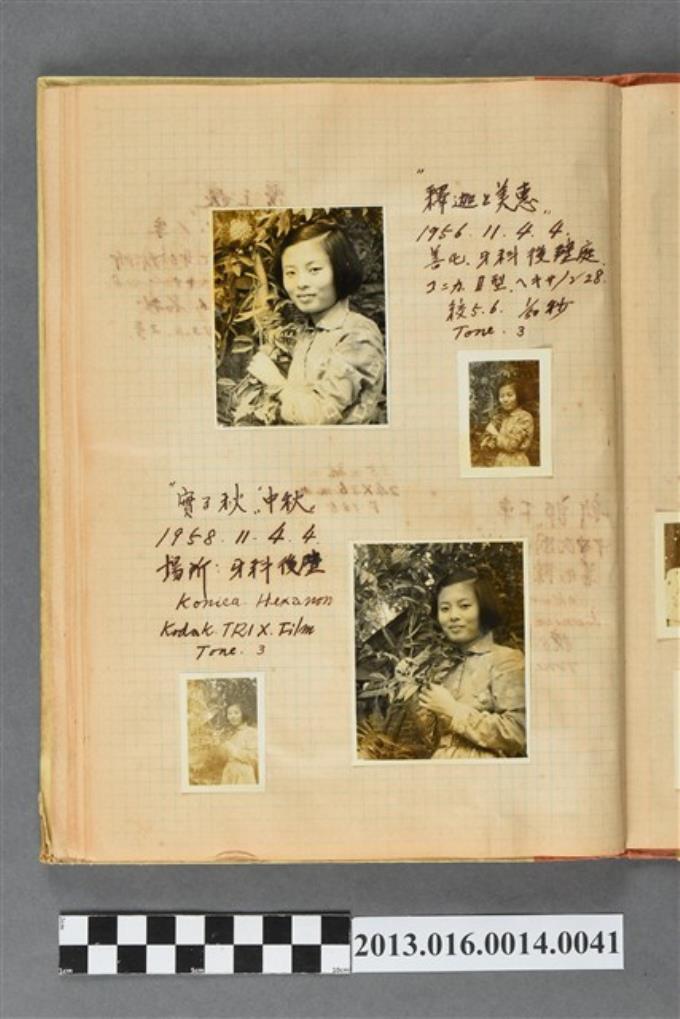 "釋迦と美惠"
1956. 11. 4. 4.
善化、牙科後
コニカ Ⅱ型、ヘキサノン 28.
絞 5.6. 1/50 秒
Tone. 3
秋" 中秋
1958. 11. 4. 4
場所: 牙科後
Konica. Hexanon
Kodak. TRI X. Film
Tone. 3
2013.016.0014.0041
1cm 5cm 10cm